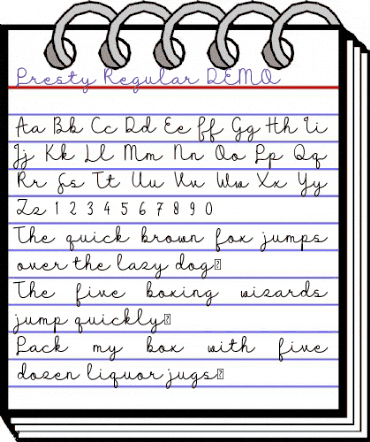 Presty Regular DEMO
Aa Bb Cc Dd Ee Ff Gg Hh Ii
Jj Kk Ll Mm Nn Oo Pp Qq
Rr Ss Tt Uu Vv Ww Xx Yy
Zz 1 2 3 4 5 6 7 8 9 0
The quick brown fox jumps
over the lazy dog
The five boxing wizards
jump quickly
Pack my box with five
dozen liquor jugs